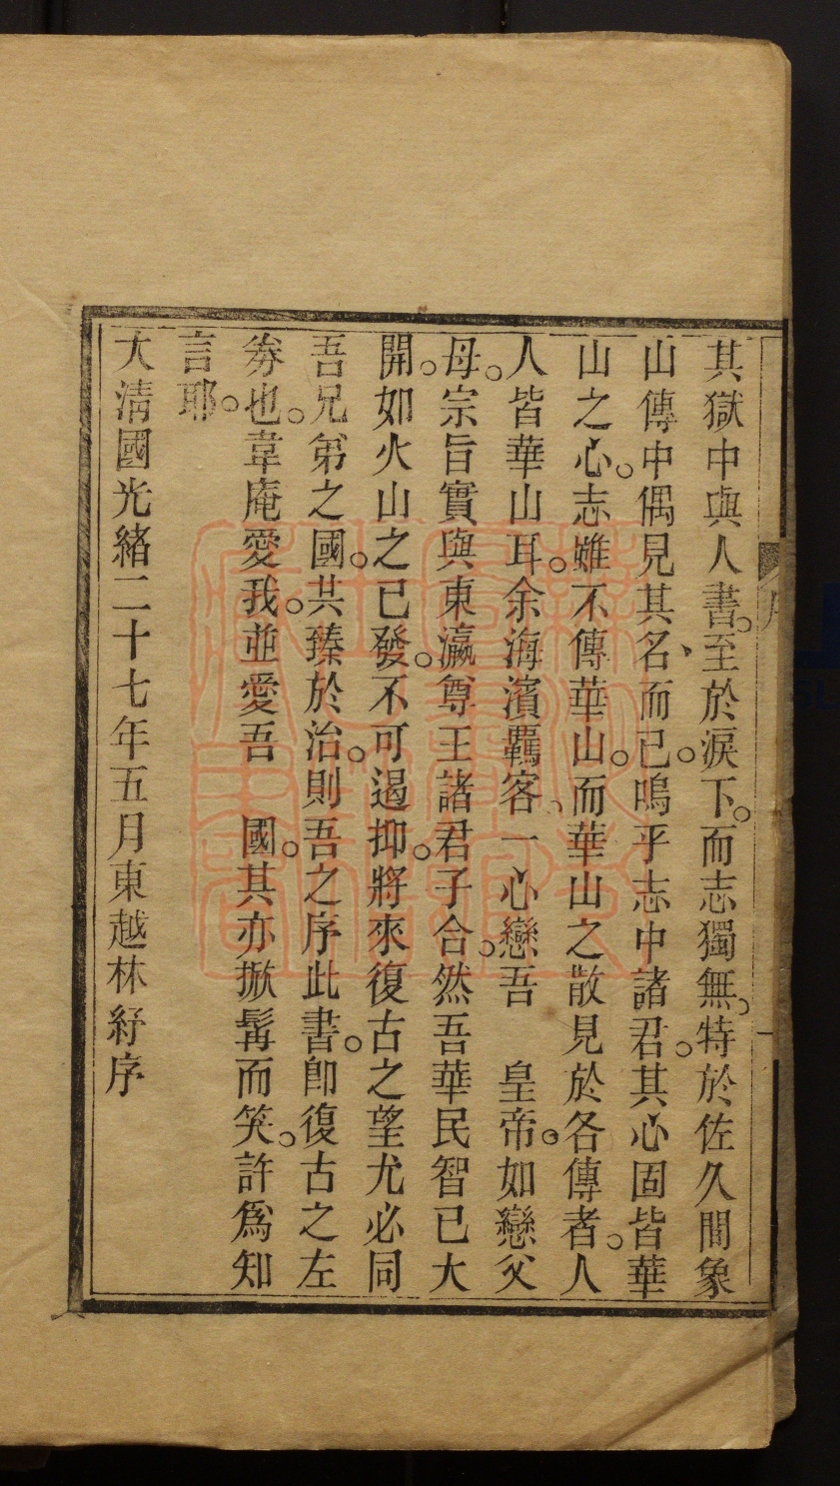 其獄中與人書。至於淚下。而志獨無。特於佐久間象
山傳中偶見其名、而已。嗚乎志中諸君。其心固皆華
山之心。志雖不傳華山。而華山之散見於各傳者。人
人皆華山耳。余海濱羈客、一心戀吾　皇帝。如戀父
母。宗旨實與東瀛尊王諸君子合。然吾華民智已大
開。如火山之已發。不可遏抑。將來復古之望尤必同
吾兄第之國。共臻於治。則吾之序此書。即復古之左
券也。韋庵愛我。並愛吾　國。其亦掀髯而笑。許爲知
言耶。
大清國光緒二十七年五月東越林紓序